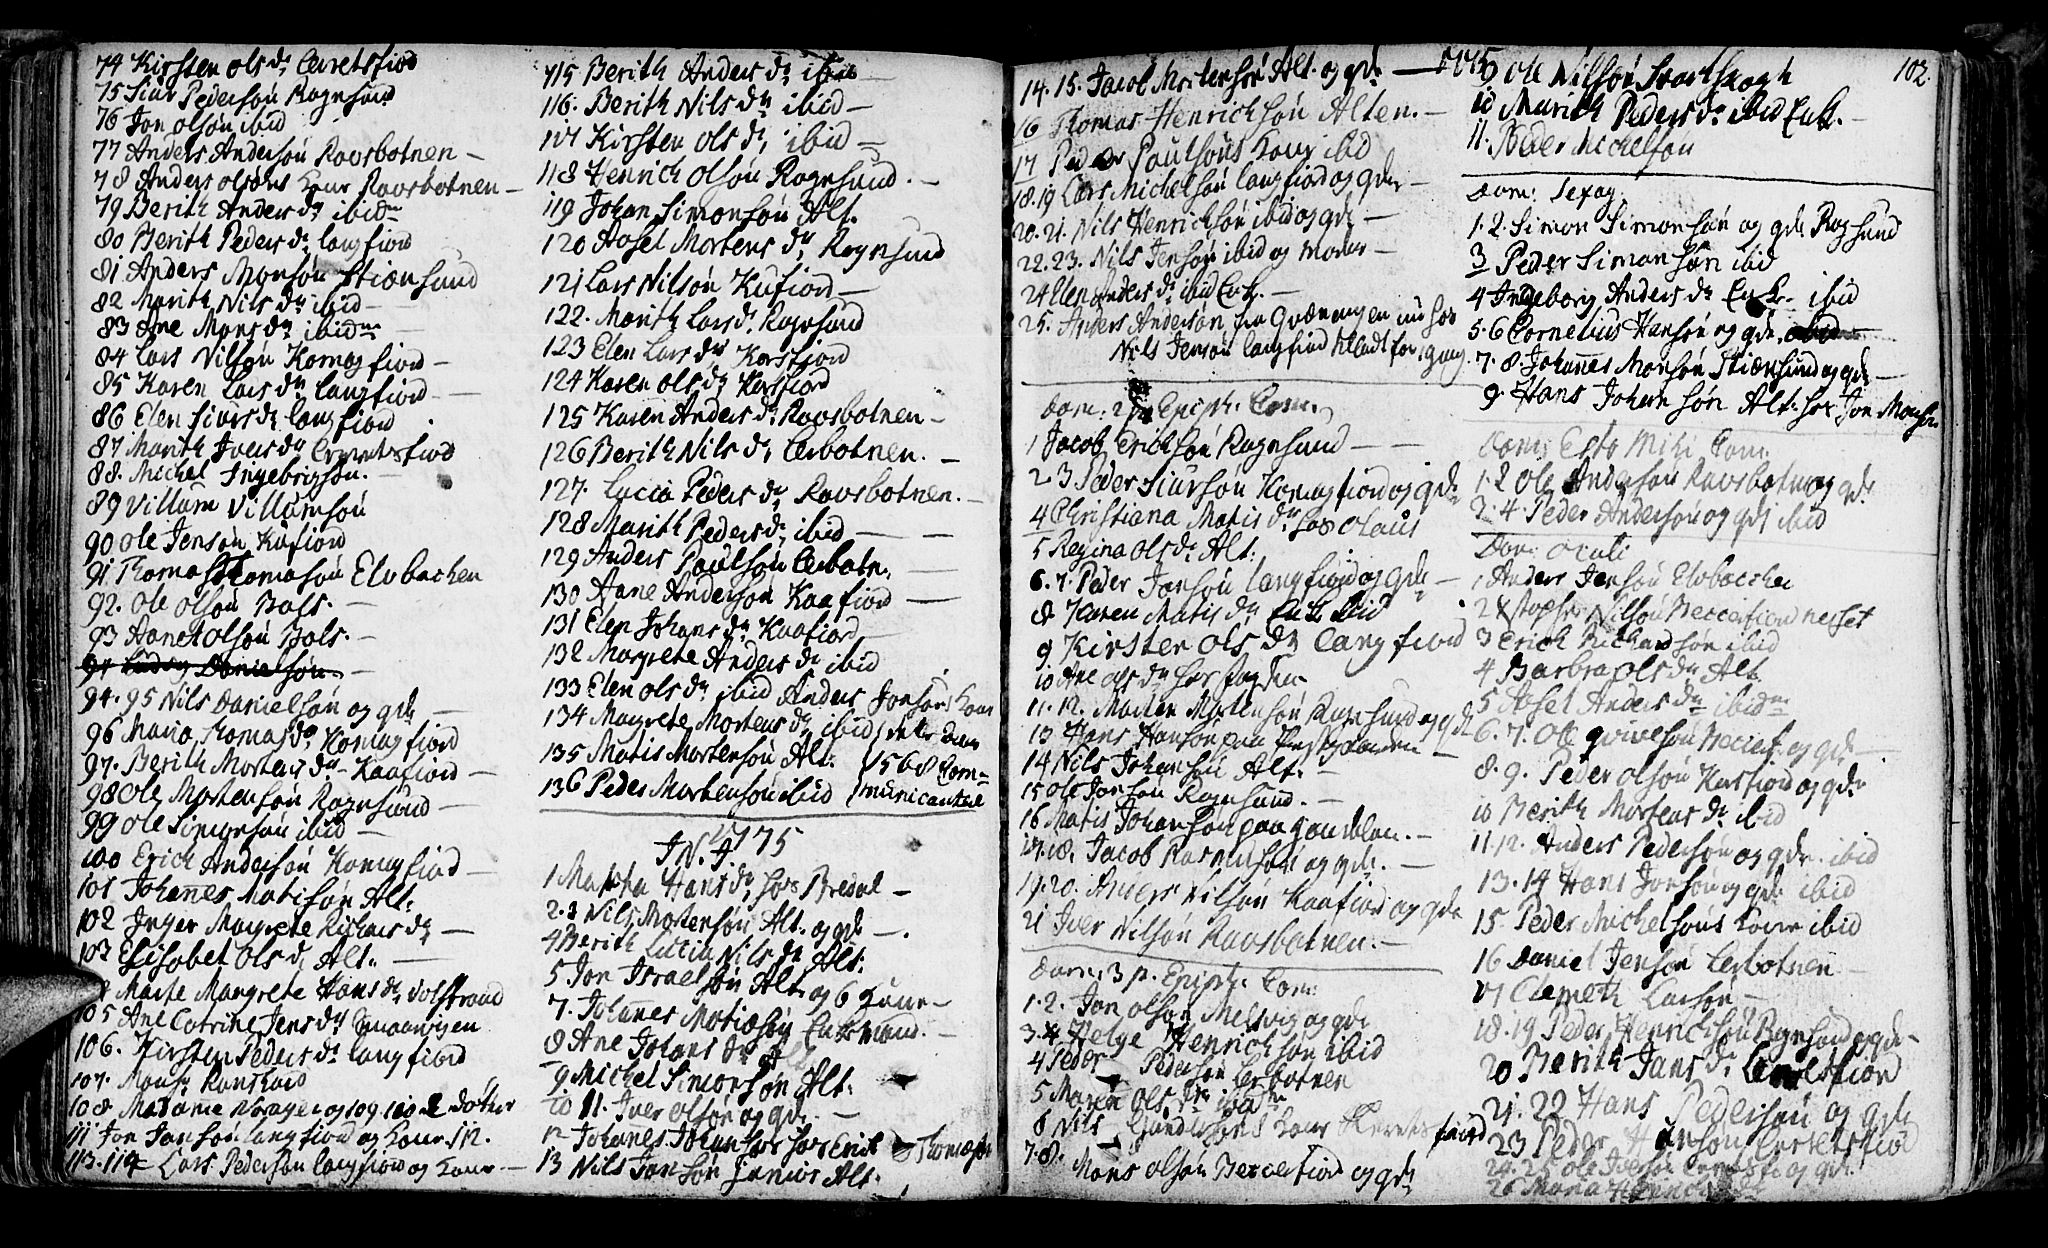 74 Kirsten ols dr Leretsfiord
75 Siur Pedersøn Rognsund
76 Jon olsøn ibid
77 Anders Andersøn Ravsbotnen –
78 Anders olsøns Kone Ravsbotnen –
79 Berith Anders dr ibidm
80 Berith Peders dr langfiord
81 Anders Monsøn Stiernsund
82 Marith Nils dr ibid –
83 Ane Mons dr ibidm –
84 Lars Nilsøn Komagfiord –
85 Karen Lars dr langfiord –
86 Elen Siurs dr langfiord
87 Marith Ivers dr Leretsfiord
88. Michel Ingebrigtsøn. –
89 Villum Villumsøn
90 Ole Jensøn Kufiord
91 Thomas Thomasøn Elvbacken
92. Ole olsøn Bals. –
93 Aanet olsøn Bals. –
94 Danielsøn. –
94. 95 Nils Danielsøn og qde –
96 Maria Thomas dr Komagfiord
97. Berith Mortens dr Kaafiord –
98 Ole Mortensøn Rognsund –
99 Ole Simonsøn ibid –
100 Erich Andersøn Komagfiord –
101 Johanes Matisøn Alt:
102 Inger Margrete Richars dr –
103 Elisabet Ols dr Alt. –
Marte Margrete Hans dr
105 Ane Catrine Jens dr
106. Kirsten Peders dr langfiord
107. Mons:
108. Madame og 109 110 2 døttre
111 Jon Jonsøn langfiord og Kone 112.
113. 114 Lars Pedersøn langfiord og Kone –
115 Berith Anders dr ibid –
116. Berith Nils dr ibid –
117 Kirsten ols dr ibid –
118 Henrich olsøn Rognsund. –
119 Johan Simonsøn Alt.
120 Aasel Mortens dr Rognsund
121 Lars Nilsøn Kufiord –
122. Marith Lars dr Rognsund
123 Elen Lars dr Korsfiord
124 Karen ols dr Korsfiord
125 Karen Anders dr Ravsbotnen –
126 Berith Nils dr Lerbotnen. –
127. Lucia Peders dr Ravsbotnen. –
128 Marith Peders dr ibid –
129 Anders Paulsøn Lerbotn. –
130 Aane Andersøn Kaafiord –
131 Elen Johans dr Kaafiord –
132 Margrete Anders dr ibid
133 Elen ols dr ibid Anders Jonsøns Kone
134 Margrete Mortens dr ibid
135 Matis Mortensøn Alt. 1568 Com=
136 Peder Mortensøn ibid municantere
1775
I. N. J.
1 Hans dr hos Bredal –
2. 3 Nils Mortensøn Alt. og qde –
4 Berith Lucia Nils dr Alt:
5 Jon Israelsøn Alt. og 6 Kone –
7. Johannes Matiesøn Enkemand. –
8 Ane Johans dr Alt
9 Michel Simonsøn Alt.
10 11. Iver olsøn og qde –
12 Johannes Johansøn hos Erich Thomasøn
13 Nils Jonsøn junior Alt.
14. 15. Jacob Mortensøn Alt. og qde – 1775
16 Thomas Henrichsøn Alten. –
17 Peder Paulsøns Kone ibid
18. 19 Lars Michelsøn langfiord og qde –
20. 21. Nils Henrichsøn ibid og qde –
22. 23. Nils Jensøn ibid og moder –
24 Elen Anders dr ibid Enk. –
25. Anders Andersøn fra Qvænangen nu hos
Nils Jensøn langfiord
Dom: 2 p. Epiph. Com.
1 Jacob Erichsøn Rognsund –
2 3 Peder Siursøn Komagfiord og qde
4 Christiana Matis dr hos Olaus
5 Regina ols dr Alt:
6. 7. Peder Jonsøn langfiord og qde –
8 Karen Matis dr Enk. ibid
9. Kirsten ols dr langfiord
10 Ane ols dr hos
11. 12. Morten Mortensøn Rognsund og qde
13 Hans Hansøn paa
14 Nils Johansøn Alt. –
15 Ole Jonsøn Rognsund. –
16 Matis Johansøn paa
17. 18. Jacob Rasmusøn og qde. –
19. 20. Anders Nilsøn Kaafiord og qde
21 Iver Nilsøn Ravsbotnen. –
Dom: 3 p. Epiph. Com:
1. 2. Jon olsøn Melsvig og qde
3. Helge Henrichsøn ibid
4 Peder Pedersøn Lerbotnen
5 Maren ols dr ibidm
6 Nils Gundersøns Kone Leretsfiord
7. 8. Mons olsøn Beccefiord og qde
9 Ole Nilsøn 102.
10 Marith Peders dr ibid Enk. –
11. Peder Michelsøn
Dom: Sexag:
1. 2. Simon Simonsøn og qde Rogsund
3 Peder Simonsøn ibid
4 Ingeborg Anders dr Enk. ibid
5. 6 Cornelius Hansøn og qde
7. 8. Johannes Monsøn Stiernsund og qde –
9. Hans Johansøn Alt. hos Jon Monsøn
Dom: Esto Mihi Com.
1. 2 Ole Andersøn Ravsbotn og qde
3. 4. Peder Andersøn og qde ibid
Dom: Oculi
1 Anders Jensøn Elvbacken
2 Xstopher Nilsøn Beccefiord
3 Erich Richardsøn ibid
4 Barbra ols dr Alt.
5 Aasel Anders dr ibidm
6. 7. Ole og qde –
8. 9. Peder olsøn Korsfiord og qde
10 Berith Mortens dr ibid
11. 12. Anders Pedersøn og qde ibid
13. 14 Hans Jonsøn og qde ibid
15. Peder Michelsøns Kone ibid
16 Daniel Jensøn Lerbotnen –
17 Clemeth Larsøn –
18. 19 Peder Henrichsøn Rognsund og qde –
20 Berith Jans dr Leretsfiord
21. 22 Hans Pedersøn og qde
23 Peder Hansøn Leretsfiord
24. 25 Ole Iversøn og qde
26 Maria